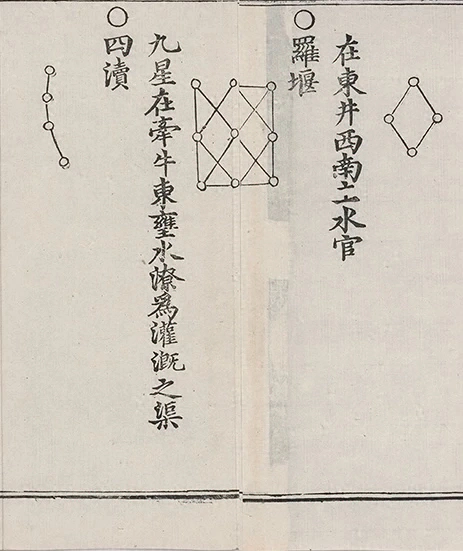 在東井西南主水官
○羅堰
九星在牽牛東壅水潦爲灌漑之渠
○四瀆